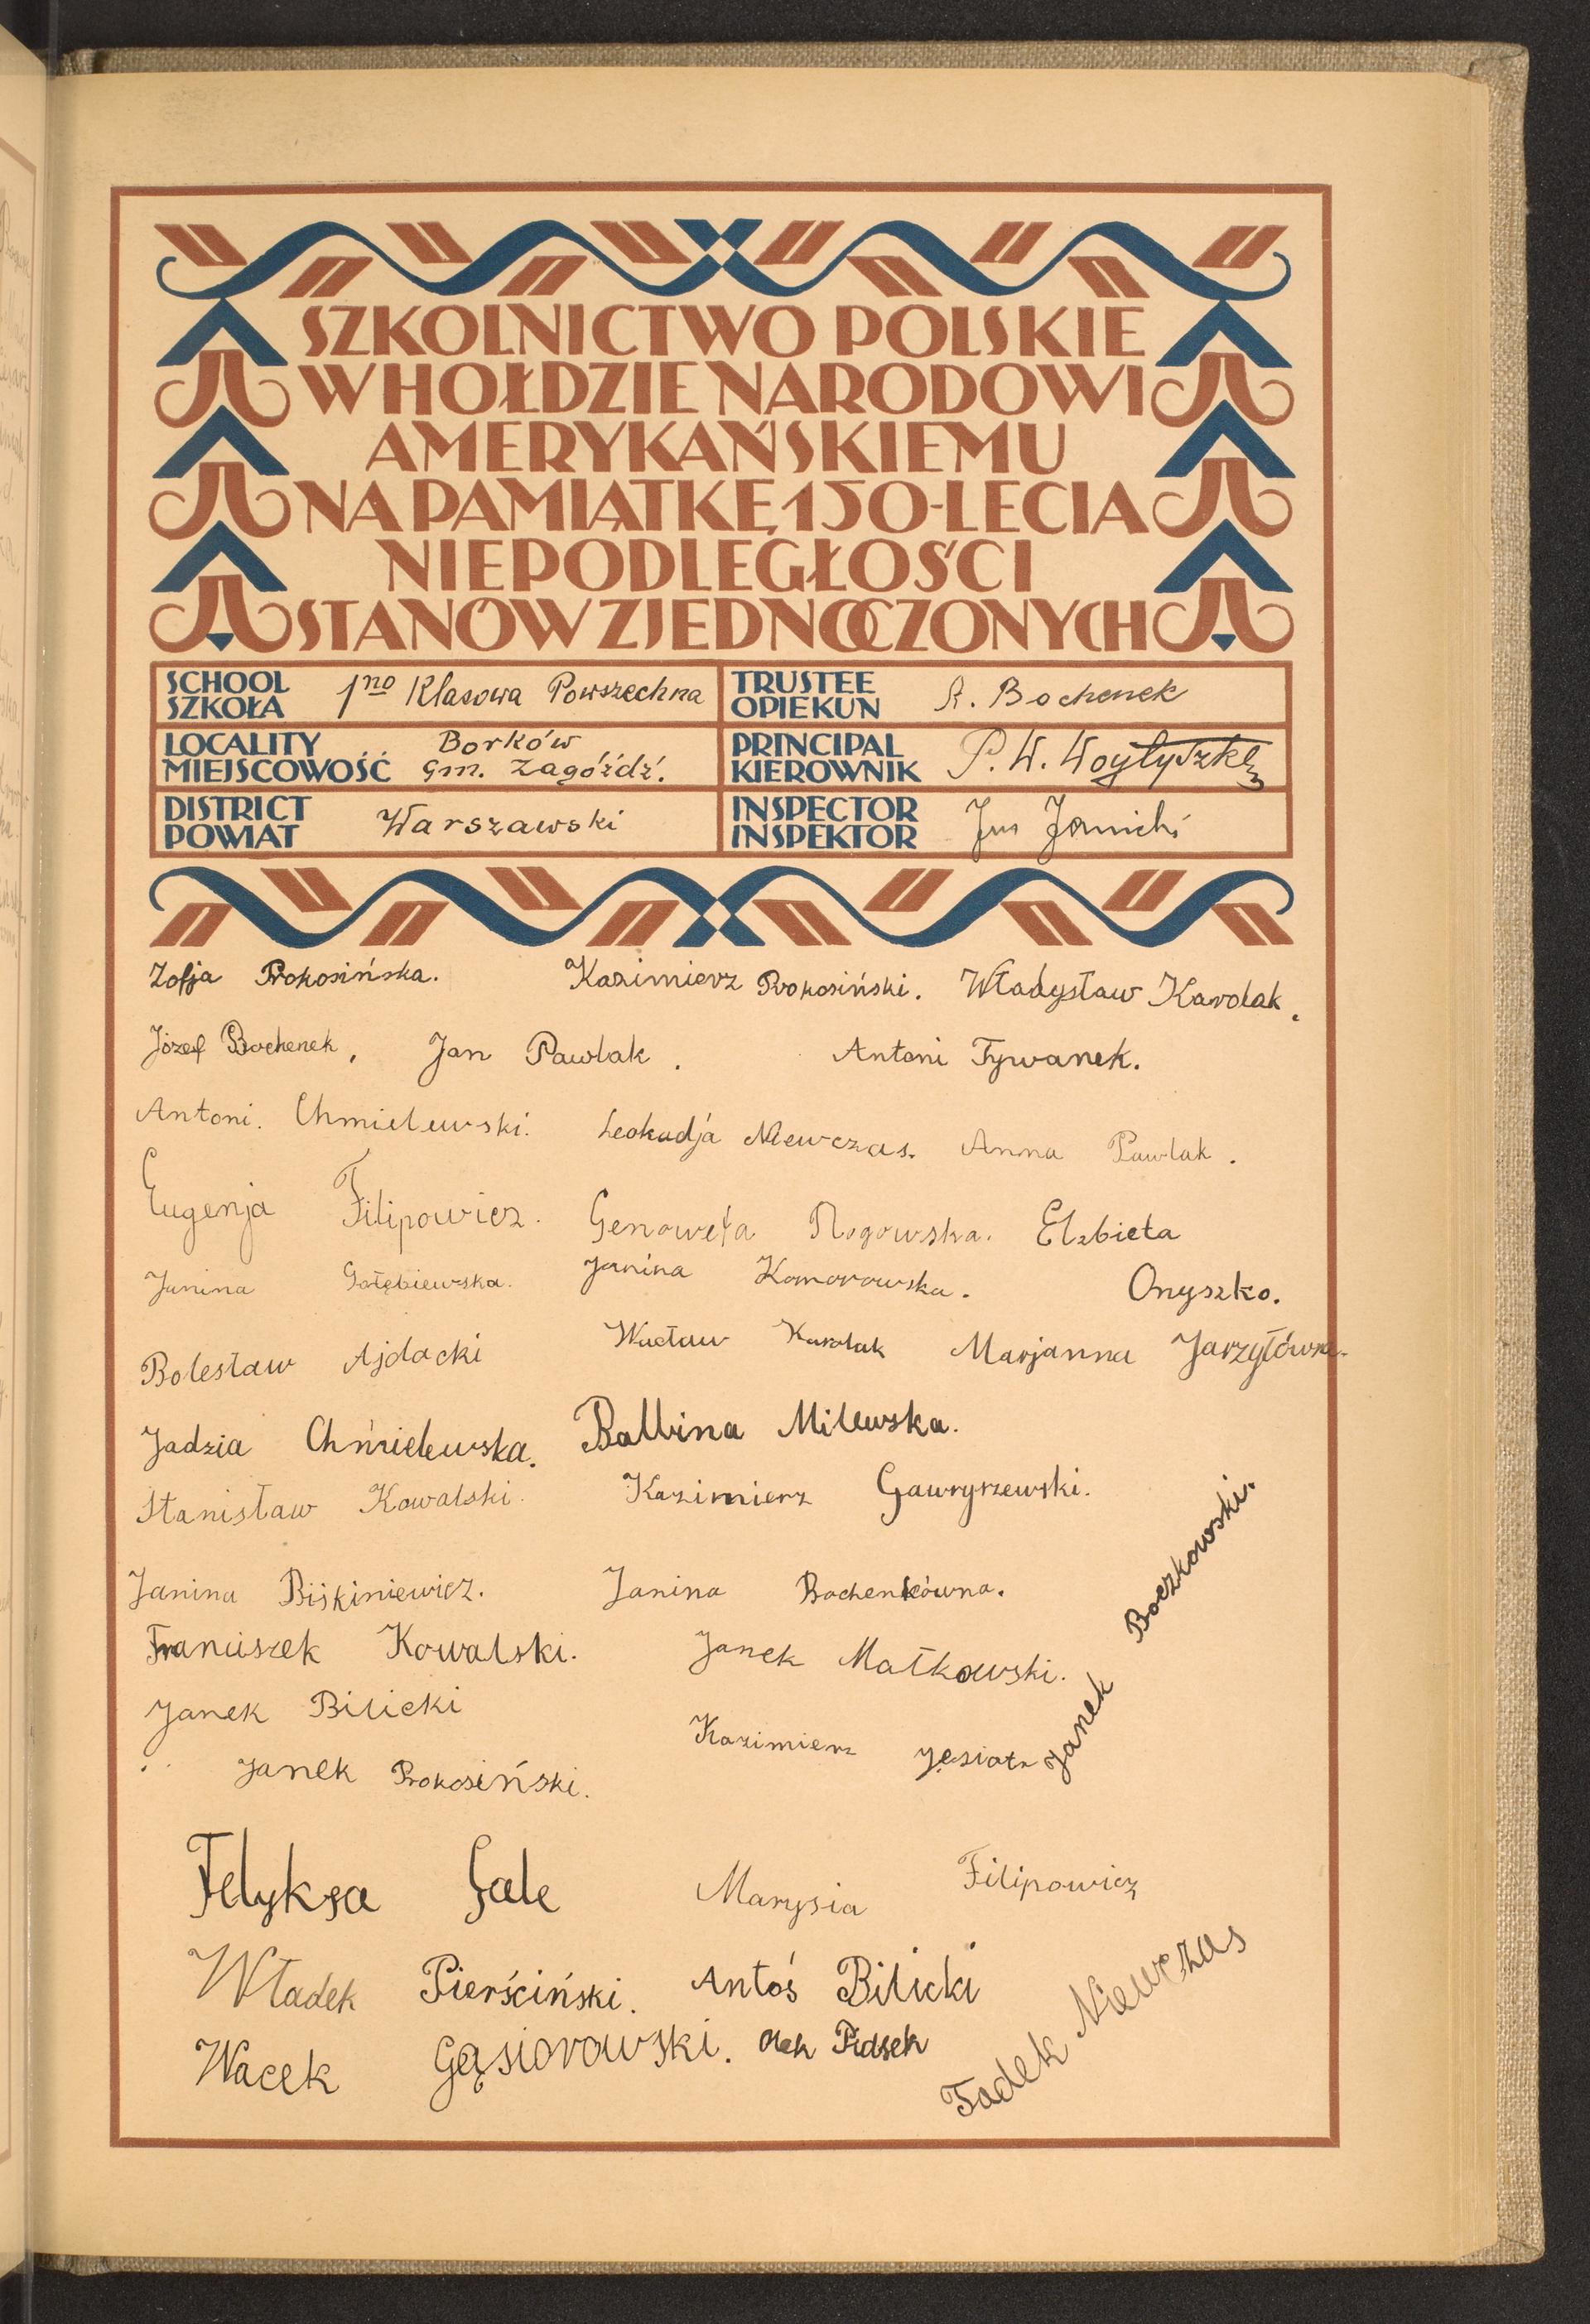 SZKOLNICTWO POLSKIE
W HOŁDZIE NARODOWI
AMERYKAŃSKIEMU
NA PAMIĄTKĘ 150-LECIA
NIEPODLEGŁOŚCI
STANÓW ZJEDNOCZONYCH
SCHOOL SZKOŁA 1no Klasowa Powszechna
TRUSTEE OPIEKUN A. Bochenek
LOCALITY MIEJSCOWOŚĆ Borków gm. Zagóźdź.
PRINCIPAL KIEROWNIK P. W.
DISTRICT POWIAT Warszawski
INSPECTOR INSPEKTOR
Zofja Prokosińska. Kazimierz Prokosiński. Władysław Karolak.
Józef Bochenek, Jan Pawlak. Antoni Tywanek.
Antoni. Chmielewski. Leokadja Niewczas. Anna Pawlak.
Eugenja Filipowicz. Genowefa Rogowska. Elzbieta
Janina Gołębiewska. Janina Komorowska. Onyszko.
Bolesław Ajdacki Wacław Karolak Marjanna Jarzyłówna.
Jadzia Chmielewska. Balbina Milewska.
Stanisław Kowalski. Kazimierz Gawryszewski.
Janina Biśkiniewicz. Janina Bochenkówna.
Franciszek Kowalski. Janek Małkowski. Janek Boczkowski.
Janek Bilicki Kazimierz
Janek Prokosiński.
Felyksa Gale Marysia Filipowicz
Władek Pierściński. Antoś Bilicki
Wacek Gąsiorowski. Olek Tadek Niewczas